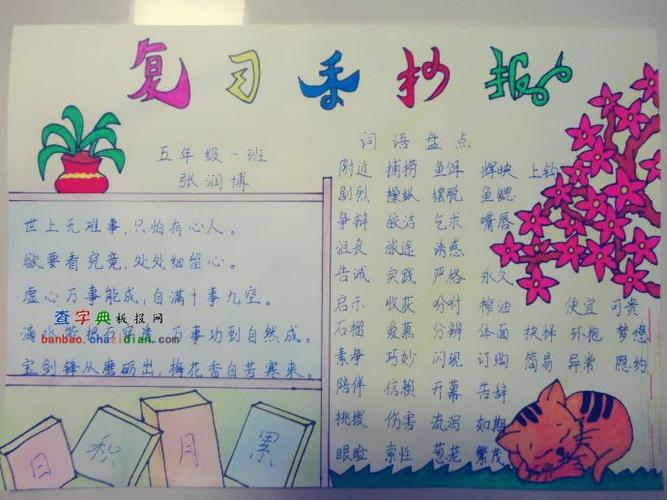 复习手抄报
五年级一班
张润博
世上无难事，只怕有心人。
欲要看究竟，处处细留心。
虚心万事能成，自满十事九空。
滴水能把石穿透，万事功到自然成。
宝剑锋从磨砺出，梅花香自苦寒来。
查字典板报网
banbao.chazidian.com
日积月累
词语盘点
附近 捕捞 鱼饵 辉映 上钩
剧烈 操纵 摆脱 鱼鳃
争辩 皎洁 乞求 嘴唇
沮丧 旅途 诱惑
告诫 实践 严格 永久
启示 收获 吩咐 榨油 便宜 可贵
石榴 爱慕 分辨 体面 抉择 环抱 梦想
素争 巧妙 闪现 订购 简易 异常 慰约
陪伴 信赖 开幕 告辞
挑拨 伤害 流泻 如期
眼睑 索性 葱茏 繁茂